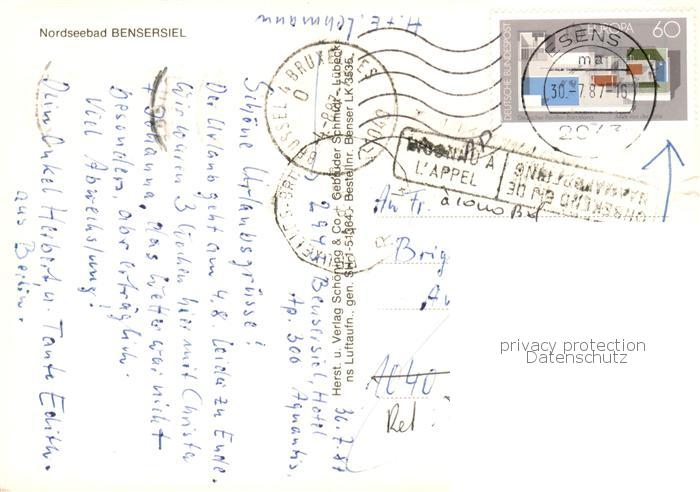 Nordseebad BENSERSIEL
H. + E. Lehmann
DEUTSCHE BUNDESPOST
EUROPA 60
Deutscher Pavillon Barcelona
ESENS
ma
30.-7.87-16
2943
INCONNU A
L'APPEL
Herst. u. Verlag Schöning & Co + Gebrüder Schmidt - Lübeck
ns Luftaufn., gen. SH-1-51364) - Bestellnr. Benser LK 3535
2943 Bensersiel, Hotel
Ap. 300 Aquantis.
30.7.87
Schöne Urlaubsgrüsse!
Der Urlaub geht am 4.8. leider zu Ende.
Wir waren 3 Wochen hier mit Christa
+ Johanna, das Wetter war nicht
besonders, aber erträglich.
Viel Abwechslung!
Dein Onkel Herbert u. Tante Edith.
aus Berlin.
An Fr.
Brig
1040
Ret :
privacy protection
Datenschutz